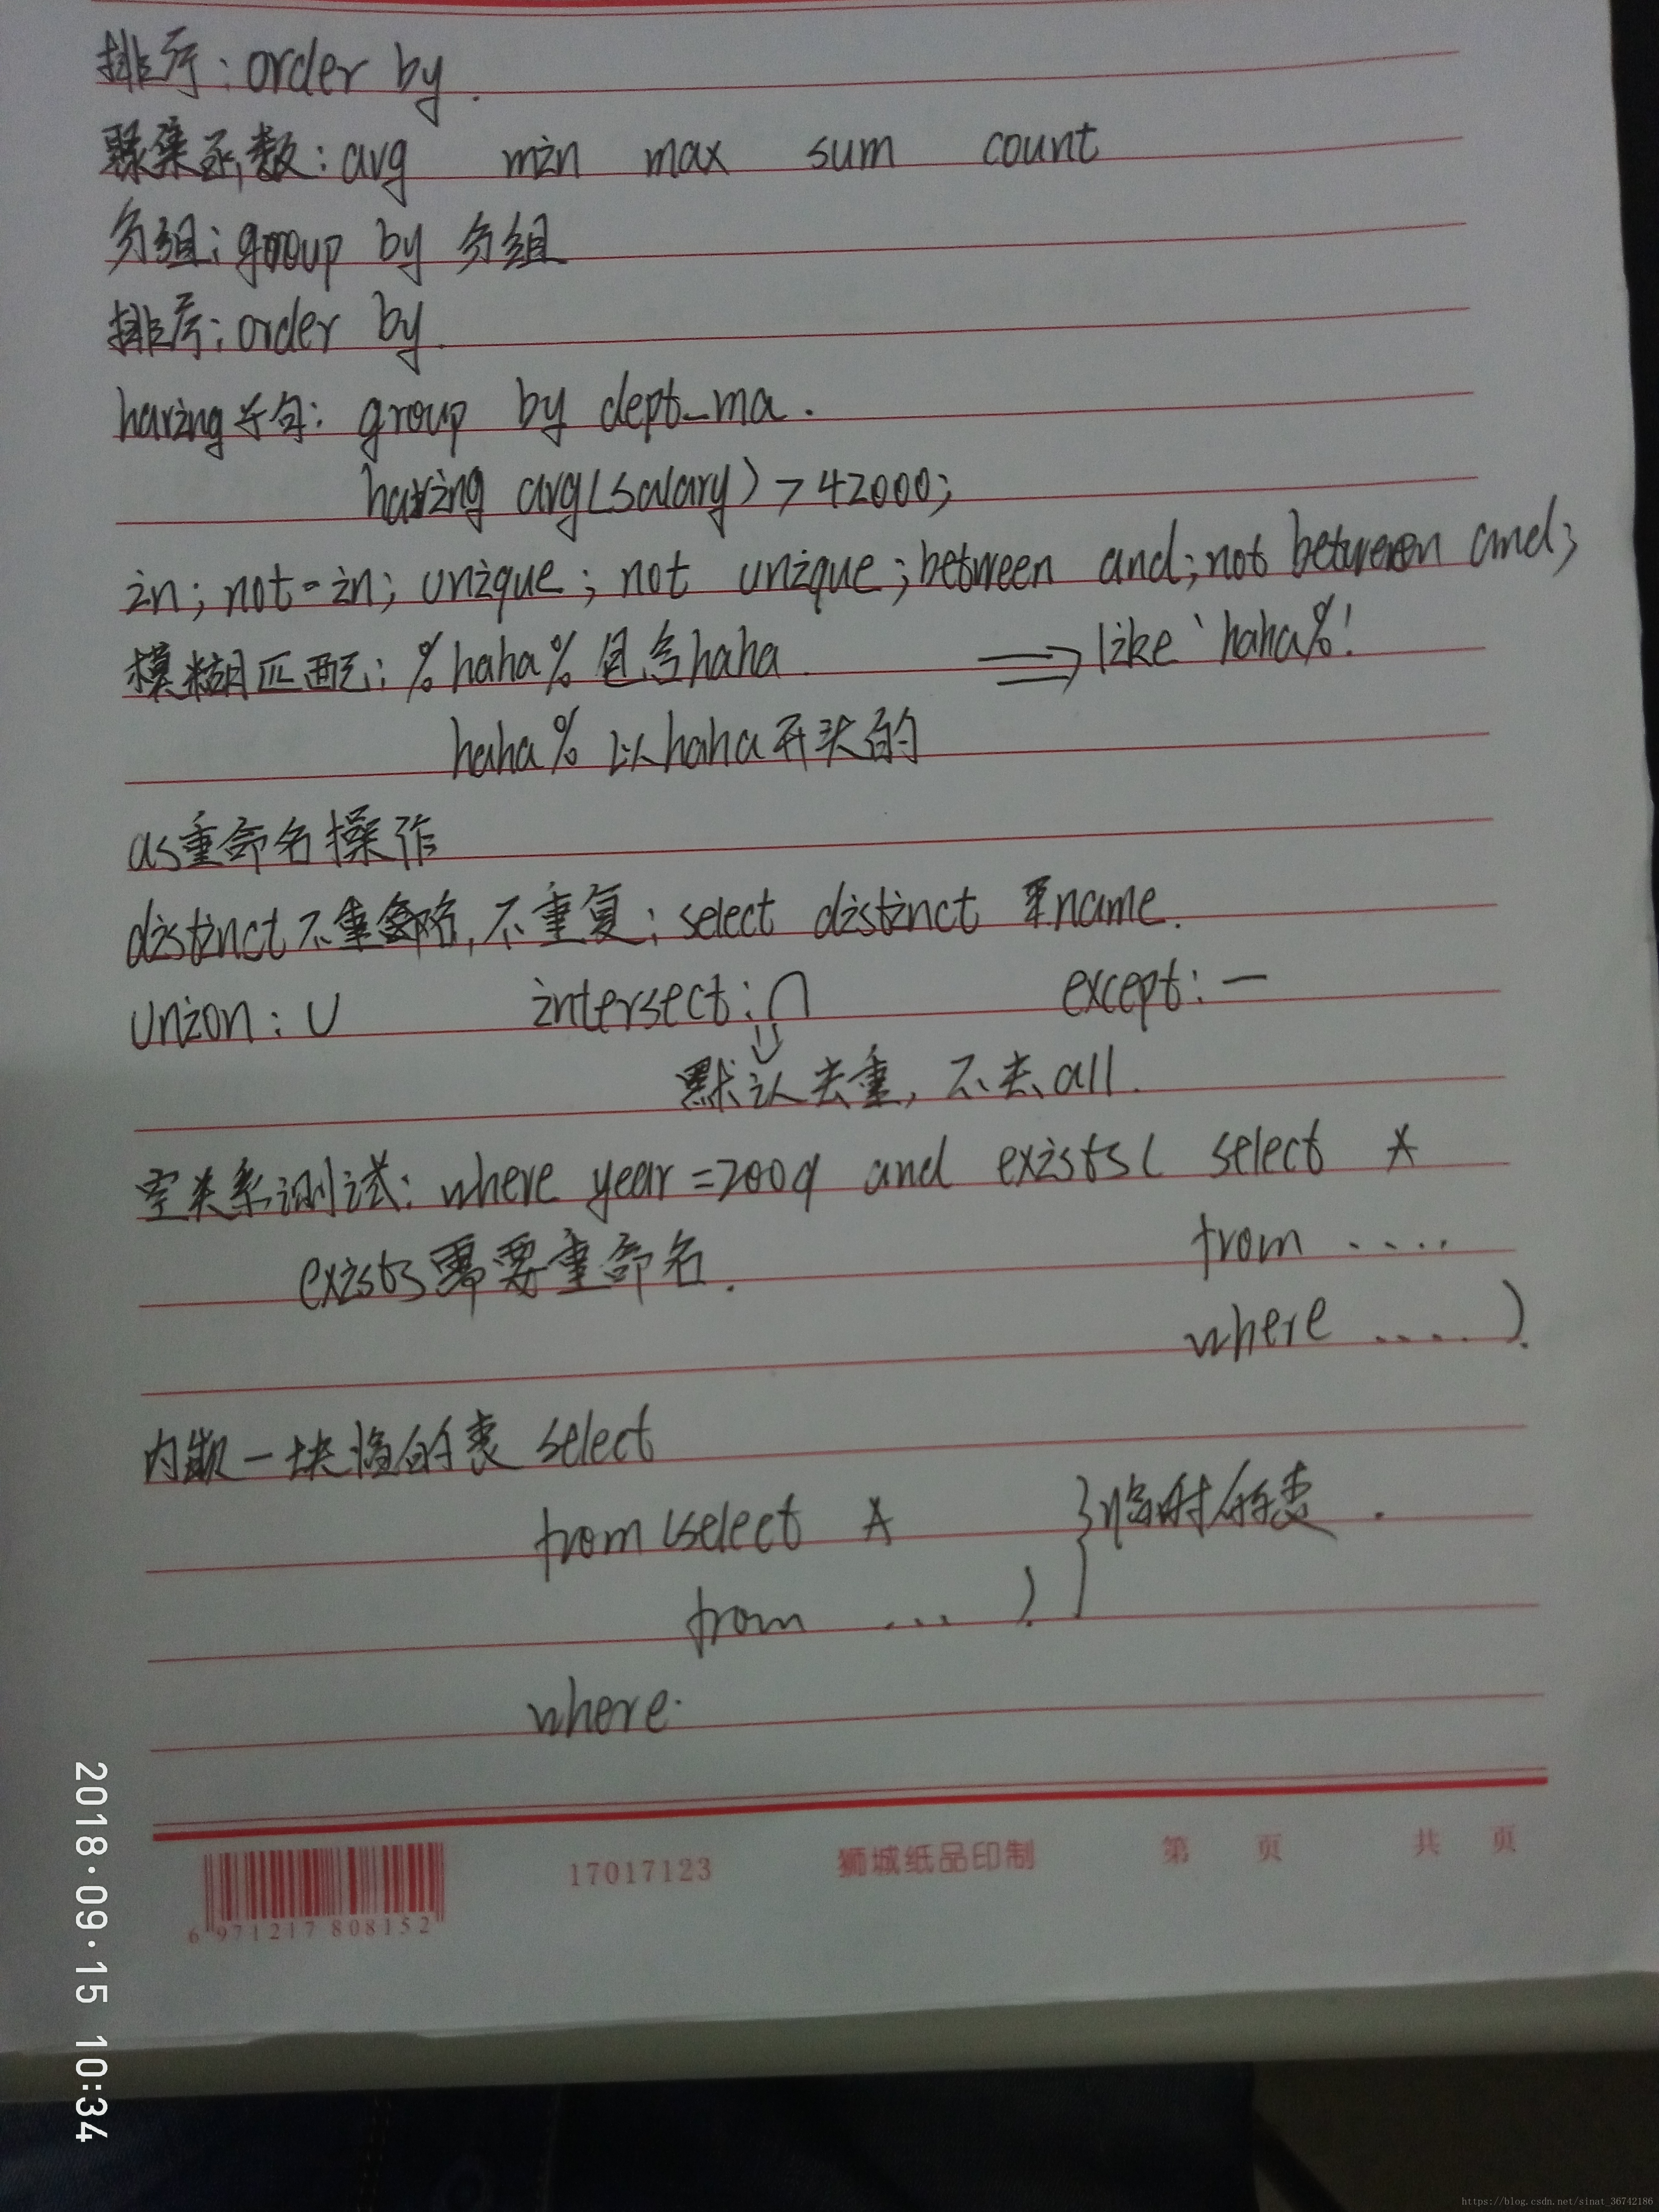 排序：order by.
聚集函数：avg min max sum count
分组：group by 分组
排序：order by.
having子句：group by dept_ma.
having avg(salary) > 42000;
in; not-in; unique; not unique; between and; not between and;
模糊匹配：%haha% 包含haha. ⟹ like 'haha%'
haha% 以haha开头的
as重命名操作
distinct 不重复; select distinct name.
union: ∪ intersect: ∩ except: —
⇓
默认去重，不去all.
空关系测试：where year=2009 and exists( select *
exists需要重命名. from ....
where ....).
内嵌一块的表 select
from (select * }临时的表.
from ... ).
where.
6 971217 808152
17017123 狮城纸品印制 第 页 共 页
2018·09·15 10:34
https://blog.csdn.net/sinat_36742186